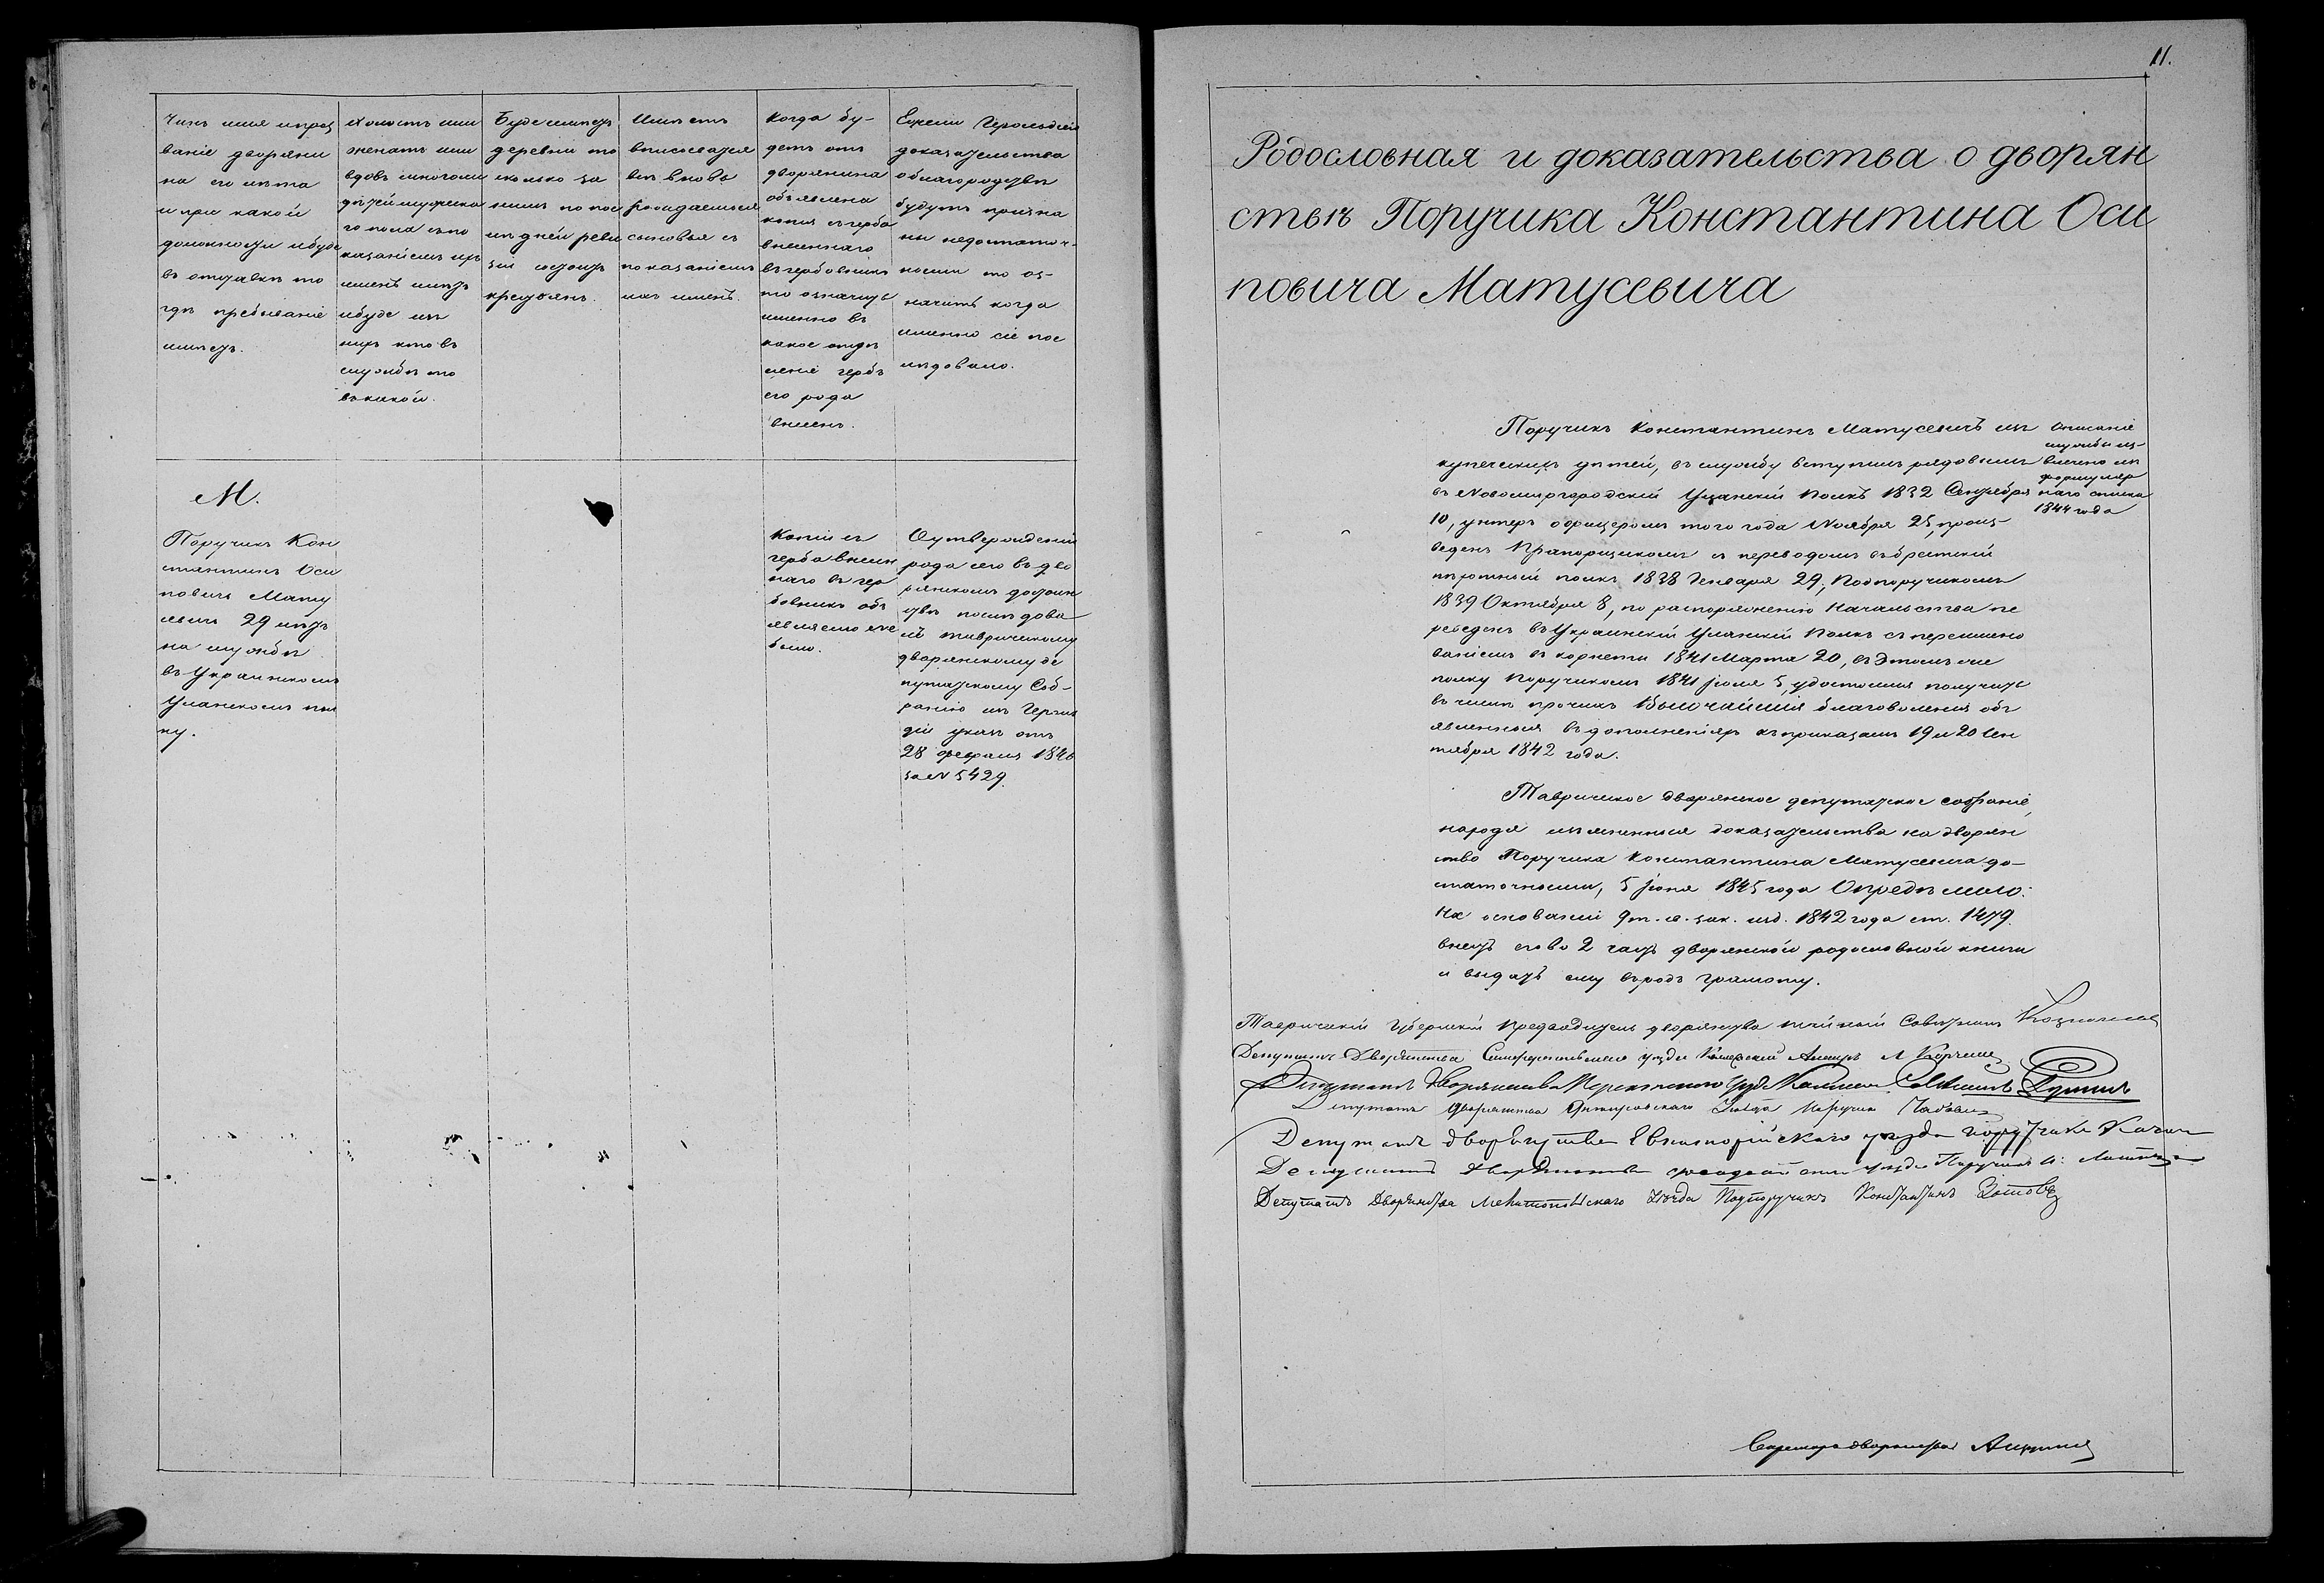 Чинъ имя и проз
ваніе дворяни
на его лѣта
и при какой
должности и буде
въ отставкѣ то
гдѣ пребываніе
имѣетъ.
Холостъ или
женатъ или
вдовъ и много ли
дѣтей мужеска
го пола съ по
казаніемъ ихъ
именъ и лѣтъ
и буде изъ
нихъ кто въ
службѣ то
въ какой.
Буде имѣетъ
деревни то
сколько за
нимъ по пос
лѣдней реви
зіи состоитъ
крестьянъ.
Имѣетъ
вписоватся
всѣ вновь
рождаемыя
сыновья съ
показаніемъ
ихъ именъ.
Когда бу-
детъ отъ
дворянина
объявлена
копія съ герба
внесеннаго
въ гербовникъ
то означить
именно въ
какое отдѣ
леніе гербъ
его рода
внесенъ.
Ежели Герольдіею
доказательства
о благородствѣ
будутъ призна
ны недостаточ-
ными то оз-
начить когда
именно сіе пос
лѣдовало.
М.
Поручикъ Кон
стантинъ Оси
повичъ Мату
севичъ 29 лѣтъ
на службѣ
въ Украинскомъ
Уланскомъ пол
ку.
Копіи съ
герба внесен
наго въ гер
бовникъ объ
являемо не
было.
О утвержденіи
рода сего въ дво
рянскомъ достоин
ствѣ послѣдова
лъ Таврическому
дворянскому де
путатскому Соб-
ранію изъ Героль
діи указъ отъ
28 февраля 1846
за № 5429.
11.
Родословная и доказательства о дворян
ствѣ Поручика Константина Оси
повича Матусевича
Поручикъ Константинъ Матусевичъ изъ
купеческихъ дѣтей, въ службу вступилъ рядовымъ
въ Новомиргородскій Уланскій Полкъ 1832 Сентября
10, унтеръ офицеромъ того года Ноября 25, произ-
веденъ Прапорщикомъ съ переводомъ въ Брестскій
пѣхотный полкъ 1838 Генваря 29, Подпоручикомъ
1839 Октября 8, по распоряженію Начальства пе
реведенъ въ Украинскій Уланскій Полкъ съ переимено
ваніемъ въ корнеты 1841 Марта 20, въ Этомъ же
полку Поручикомъ 1841 Іюля 5, удостоился получить
въ числѣ прочихъ Высочайшія благоволенія объ
явленныя въ дополненіяхъ къ приказамъ 19 и 20 Сен
тября 1842 года.
Описаніе
службы из-
влечено изъ
формуляр
наго списка
1844 года
Таврическое дворянское депутатское собраніе,
находя изъясненныя доказательства на дворян
ство Поручика Константина Матусевича до-
статочными, 5 Іюня 1845 года Опредѣлило:
На основаніи 9 т. св. зак. изд. 1842 года ст. 1479.
внесть его во 2 часть дворянской родословной книги
и выдать ему въ родъ грамоту.
Таврическій Губернскій Предводитель дворянства Статскій Совѣтникъ Казначеевъ
Депутатъ Дворянства Симферопольскаго уѣзда
Депутатъ дворянства Перекопскаго уѣзда
Депутатъ Дворянства Днѣпровскаго Уѣзда Поручикъ
Депутатъ дворянства Евпаторійскаго уѣзда поручикъ
Депутатъ дворянства Феодосійскаго уѣзда Поручикъ
Депутатъ Дворянства Мелитопольскаго Уѣзда Подпоручикъ Константинъ Зотовъ
Секретарь дворянства